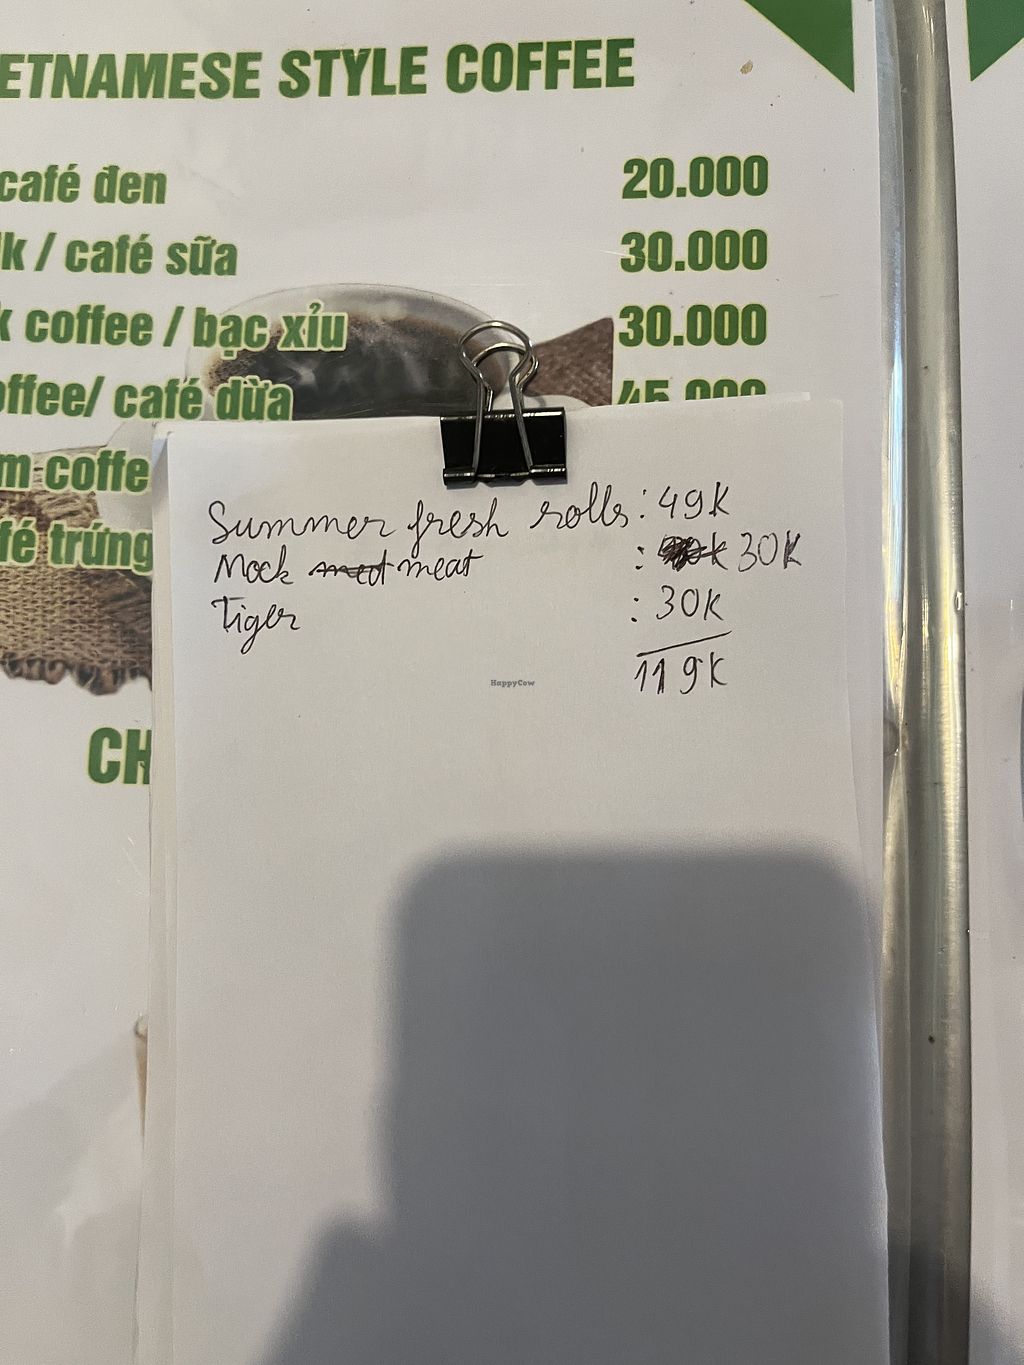 ETNAMESE STYLE COFFEE
café đen 20.000
lk / café sữa 30.000
k coffee / bạc xỉu 30.000
offee/ café dừa 45.000
m coffe
fé trứng
Summer fresh rolls : 49K
Mock meat : 30K
Tiger : 30K
119K
HappyCow
CH